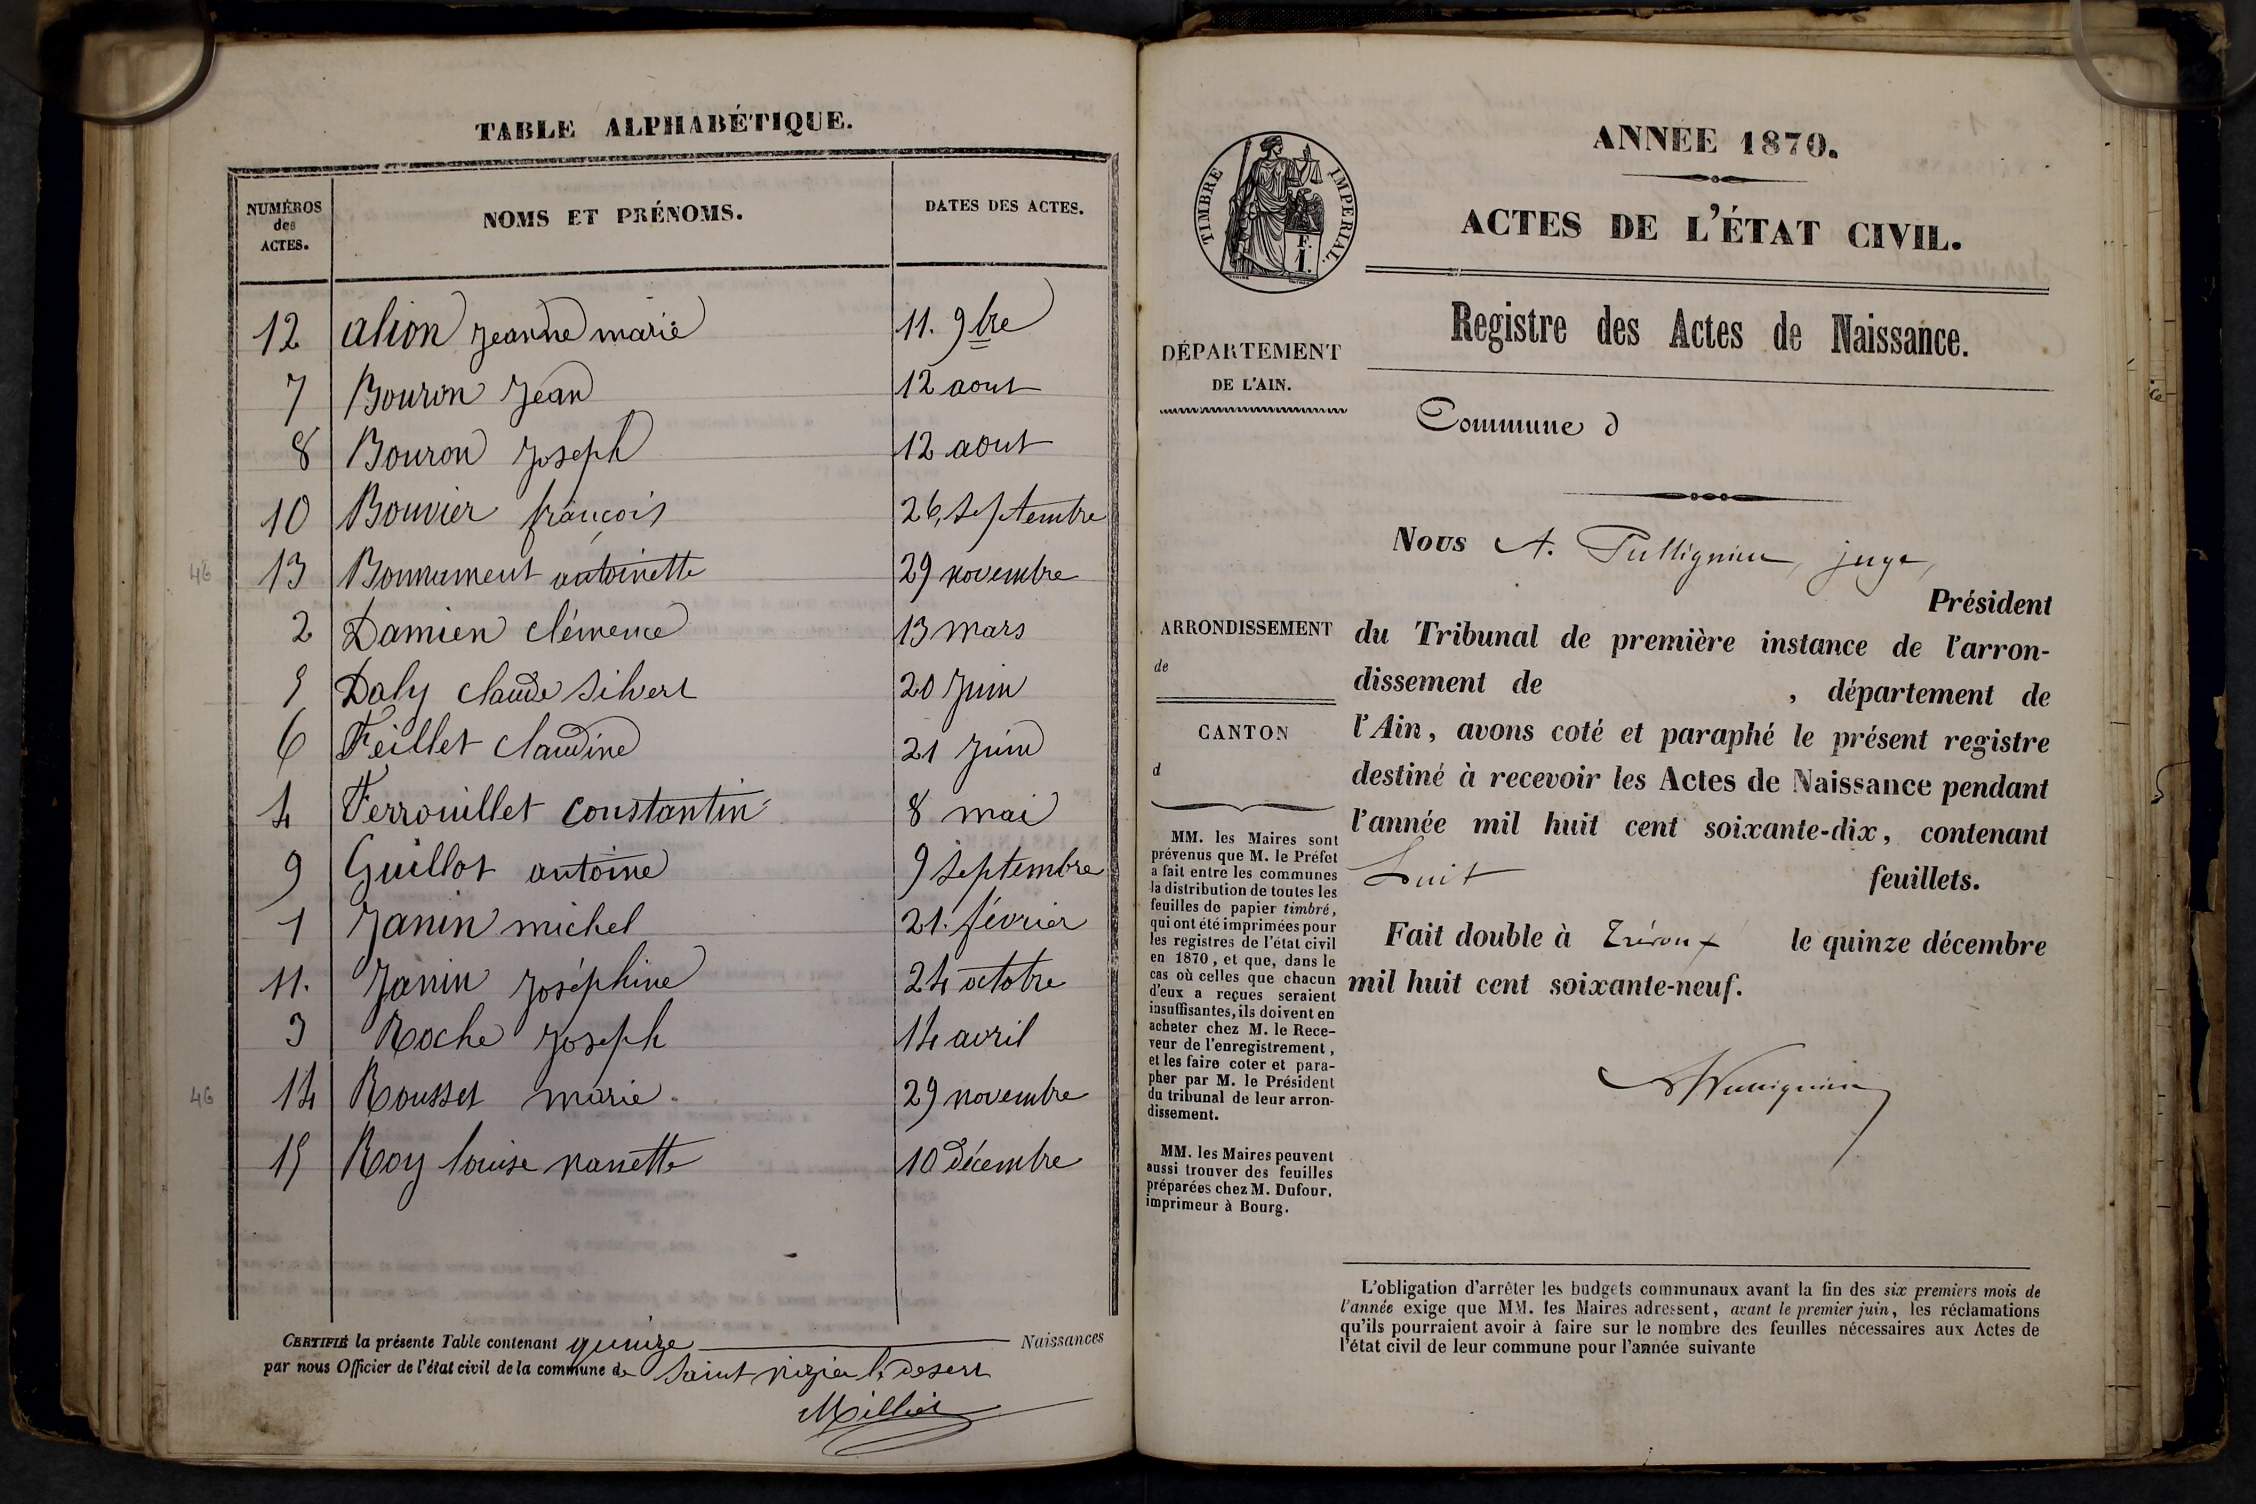 TABLE ALPHABÉTIQUE.
NUMÉROS des ACTES. NOMS ET PRÉNOMS. DATES DES ACTES.
12 alion Jeanne marie 11. 9bre
7 Bouron Jean 12 aout
8 Bouron Joseph 12 aout
10 Bouvier françois 26 septembre
46 13 Bonnument antoinette 29 novembre
2 Damien clémence 13 mars
5 Daly claude silvert 20 Juin
6 Feillet claudine 21 Juin
4 Ferrouillet constantin 8 mai
9 Guillot antoine 9 septembre
1 Janin michel 21. février
11. Janin Joséphine 24 octobre
3 Roche Joseph 14 avril
46 14 Rousset marie. 29 novembre
15 Roy louise nanette 10 décembre
CERTIFIÉ la présente Table contenant quinze Naissances
par nous Officier de l'état civil de la commune de Saint nizier le desert
Millier
TIMBRE IMPERIAL.
F.
1.
DÉPARTEMENT
DE L'AIN.
ARRONDISSEMENT
de
CANTON
d
MM. les Maires sont
prévenus que M. le Préfet
a fait entre les communes
la distribution de toutes les
feuilles de papier timbré,
qui ont été imprimées pour
les registres de l'état civil
en 1870, et que, dans le
cas où celles que chacun
d'eux a reçues seraient
insuffisantes, ils doivent en
acheter chez M. le Rece-
veur de l'enregistrement,
et les faire coter et para-
pher par M. le Président
du tribunal de leur arron-
dissement.
MM. les Maires peuvent
aussi trouver des feuilles
préparées chez M. Dufour,
imprimeur à Bourg.
ANNÉE 1870.
ACTES DE L'ÉTAT CIVIL.
Registre des Actes de Naissance.
Commune d
Nous A. juge,
Président
du Tribunal de première instance de l'arron-
dissement de , département de
l'Ain, avons coté et paraphé le présent registre
destiné à recevoir les Actes de Naissance pendant
l'année mil huit cent soixante-dix, contenant
huit feuillets.
Fait double à Trévoux le quinze décembre
mil huit cent soixante-neuf.
L'obligation d'arrêter les budgets communaux avant la fin des six premiers mois de
l'année exige que MM. les Maires adressent, avant le premier juin, les réclamations
qu'ils pourraient avoir à faire sur le nombre des feuilles nécessaires aux Actes de
l'état civil de leur commune pour l'année suivante